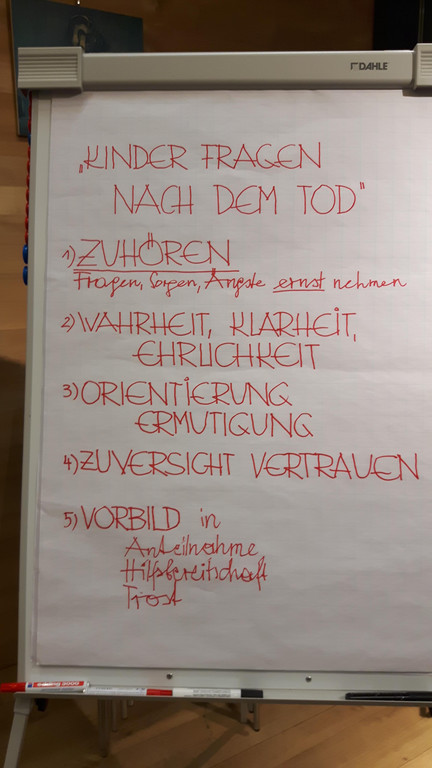 DAHLE
„KINDER FRAGEN
NACH DEM TOD"
1) ZUHÖREN
Fragen, Sorgen, Ängste ernst nehmen
2) WAHRHEIT, KLARHEIT,
EHRLICHKEIT
3) ORIENTIERUNG
ERMUTIGUNG
4) ZUVERSICHT VERTRAUEN
5) VORBILD in
Anteilnahme,
Hilfsbereitschaft
Trost